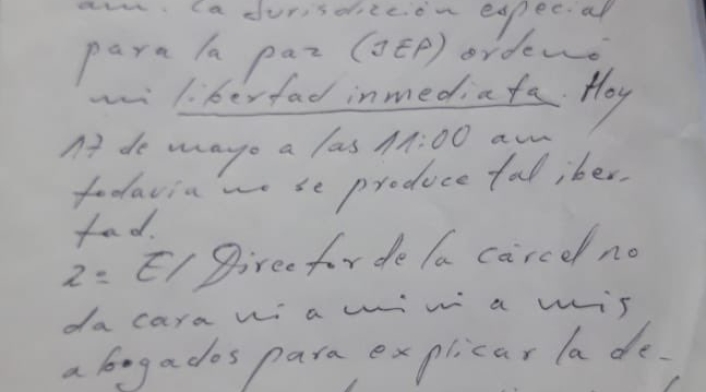 am. La Jurisdicción especial
para la paz (JEP) ordenó
mi libertad inmediata. Hoy
17 de mayo a las 11:00 am
todavia no se produce tal iber-
tad.
2= El Director de la cárcel no
da cara ni a mi ni a mis
abogados para explicar la de-